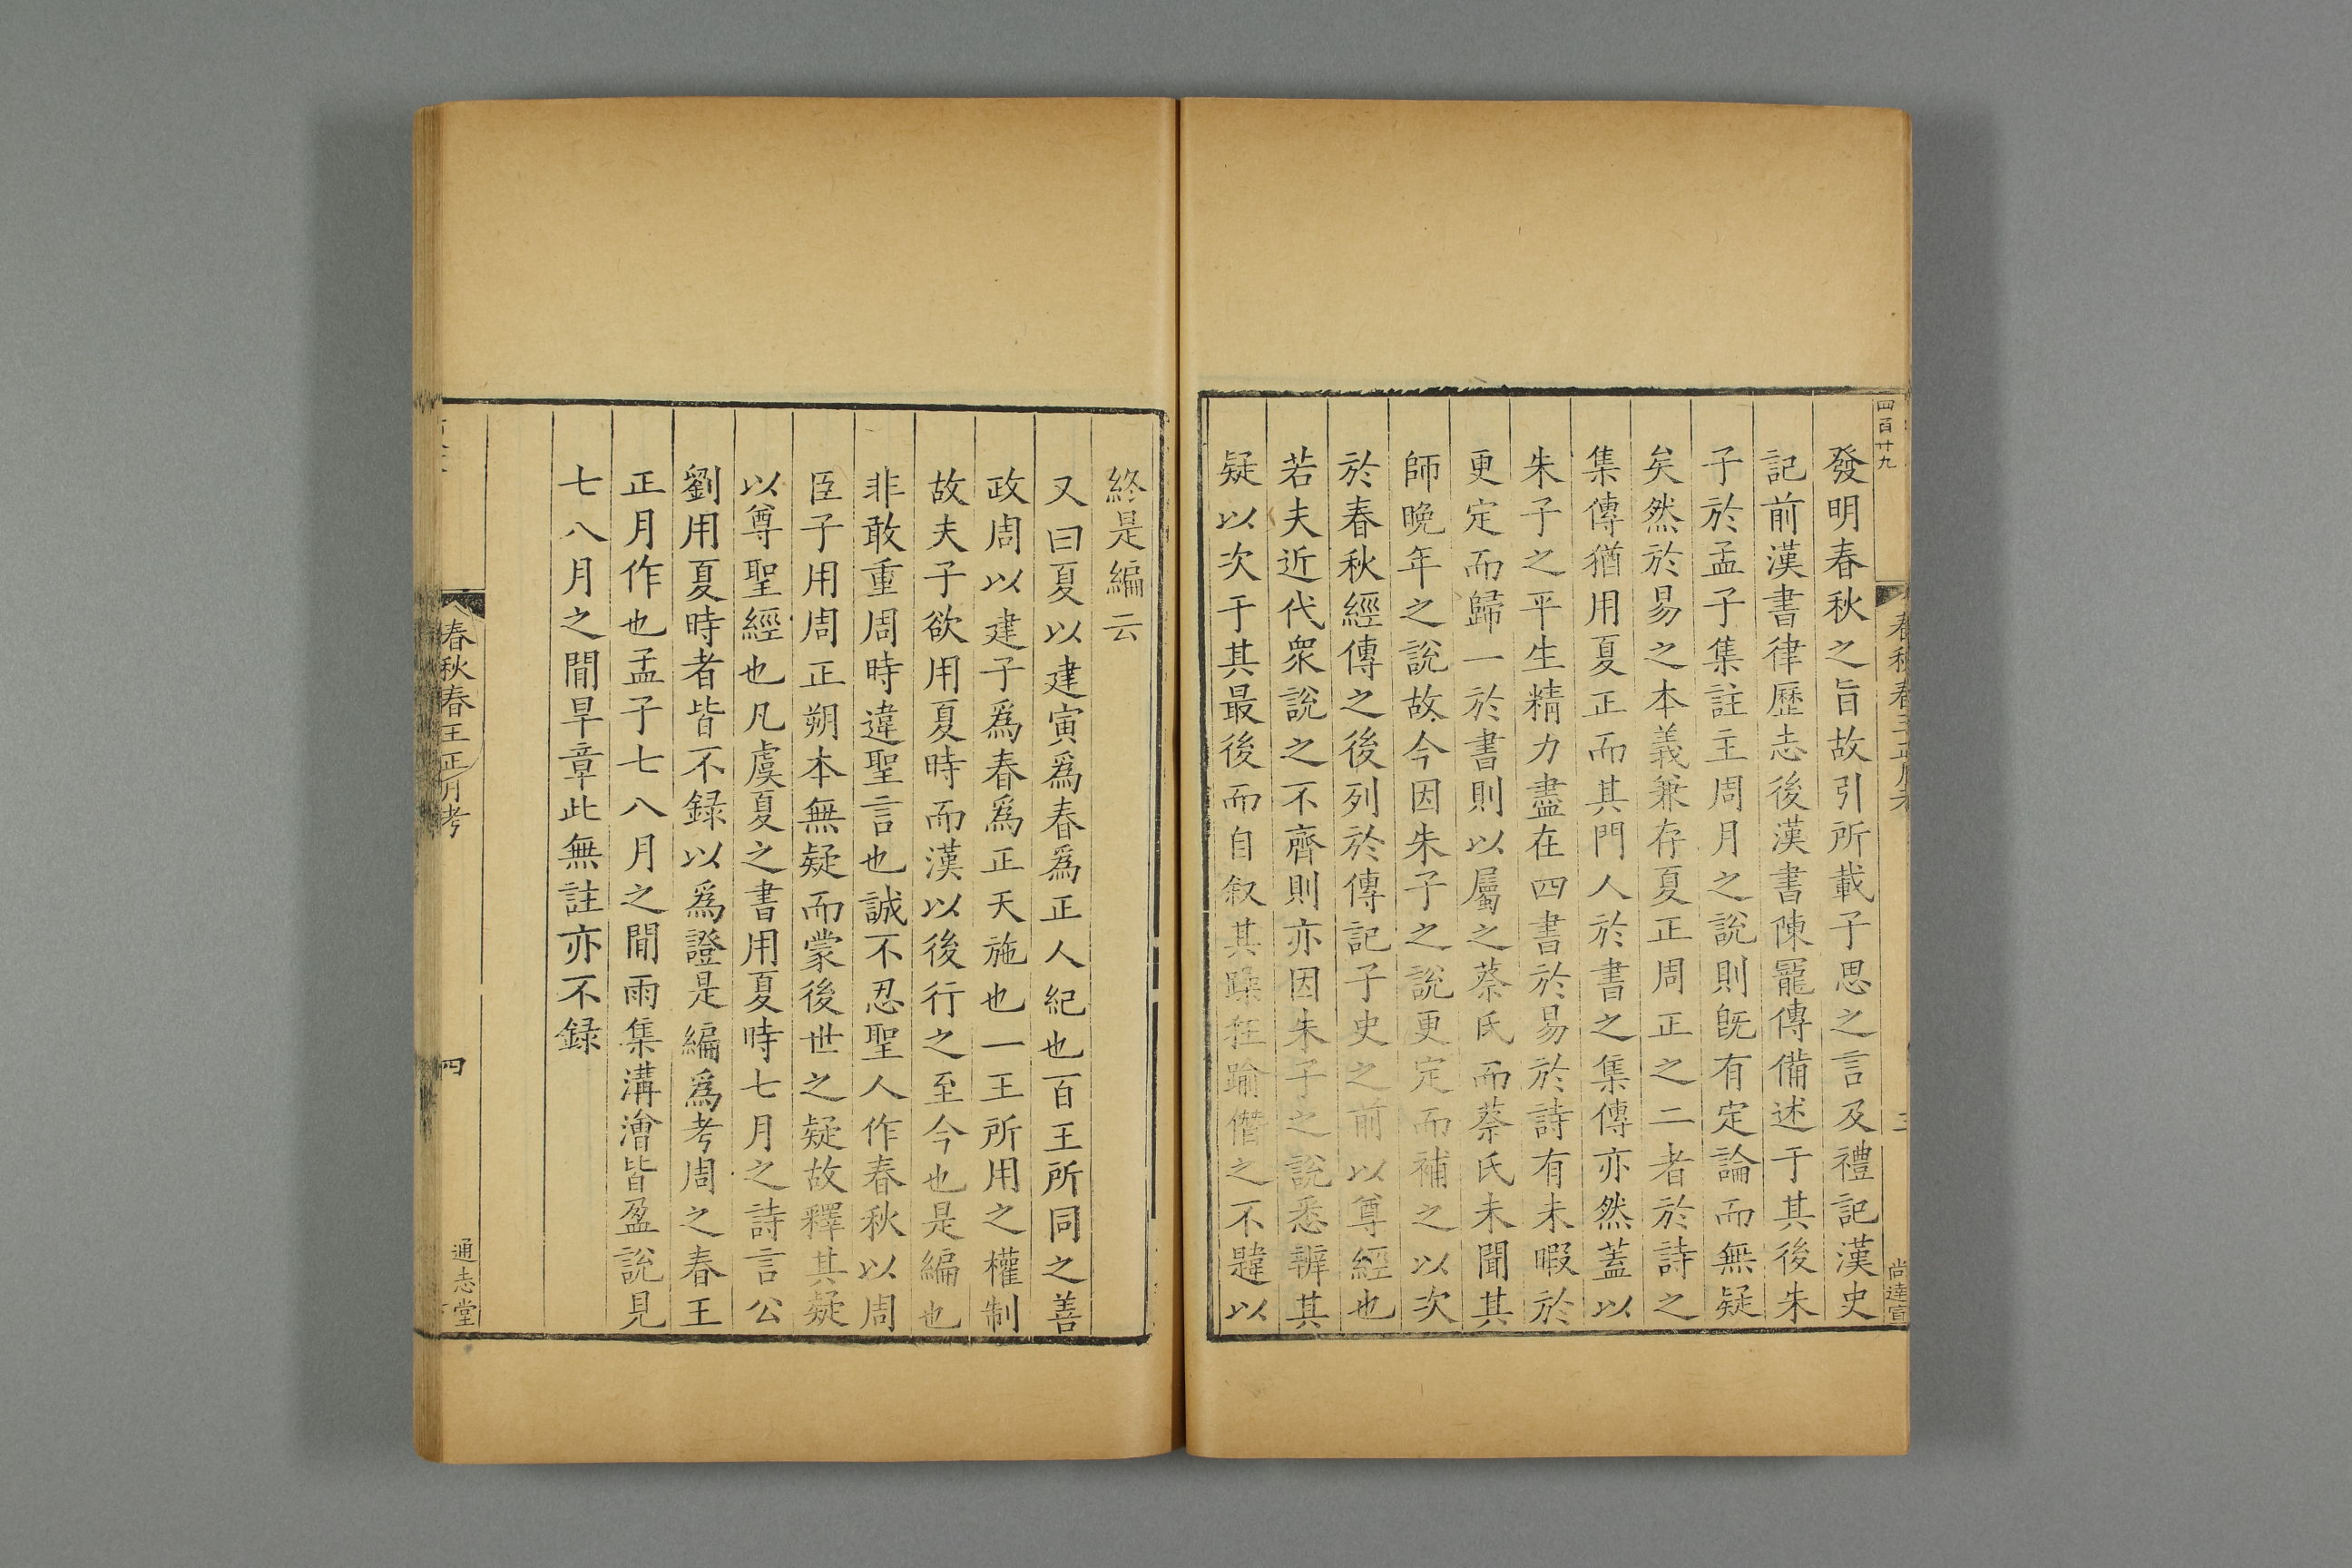 四百廿九
春秋春王正月考
三
尚達宣
發明春秋之旨故引所載子思之言及禮記漢史
記前漢書律歷志後漢書陳寵傳備述于其後朱
子於孟子集註主周月之說則旣有定論而無疑
矣然於易之本義兼存夏正周正之二者於詩之
集傳猶用夏正而其門人於書之集傳亦然蓋以
朱子之平生精力盡在四書於易於詩有未暇於
更定而歸一於書則以屬之蔡氏而蔡氏未聞其
師晚年之說故今因朱子之說更定而補之以次
於春秋經傳之後列於傳記子史之前以尊經也
若夫近代衆說之不齊則亦因朱子之說悉辨其
疑以次于其最後而自叙其躁狂踰僭之不韙以
終是編云
又曰夏以建寅爲春爲正人紀也百王所同之善
政周以建子爲春爲正天施也一王所用之權制
故夫子欲用夏時而漢以後行之至今也是編也
非敢重周時違聖言也誠不忍聖人作春秋以周
臣子用周正朔本無疑而蒙後世之疑故釋其疑
以尊聖經也凡虞夏之書用夏時七月之詩言公
劉用夏時者皆不録以爲證是編爲考周之春王
正月作也孟子七八月之閒雨集溝澮皆盈說見
七八月之閒旱章此無註亦不録
春秋春王正月考
四
通志堂